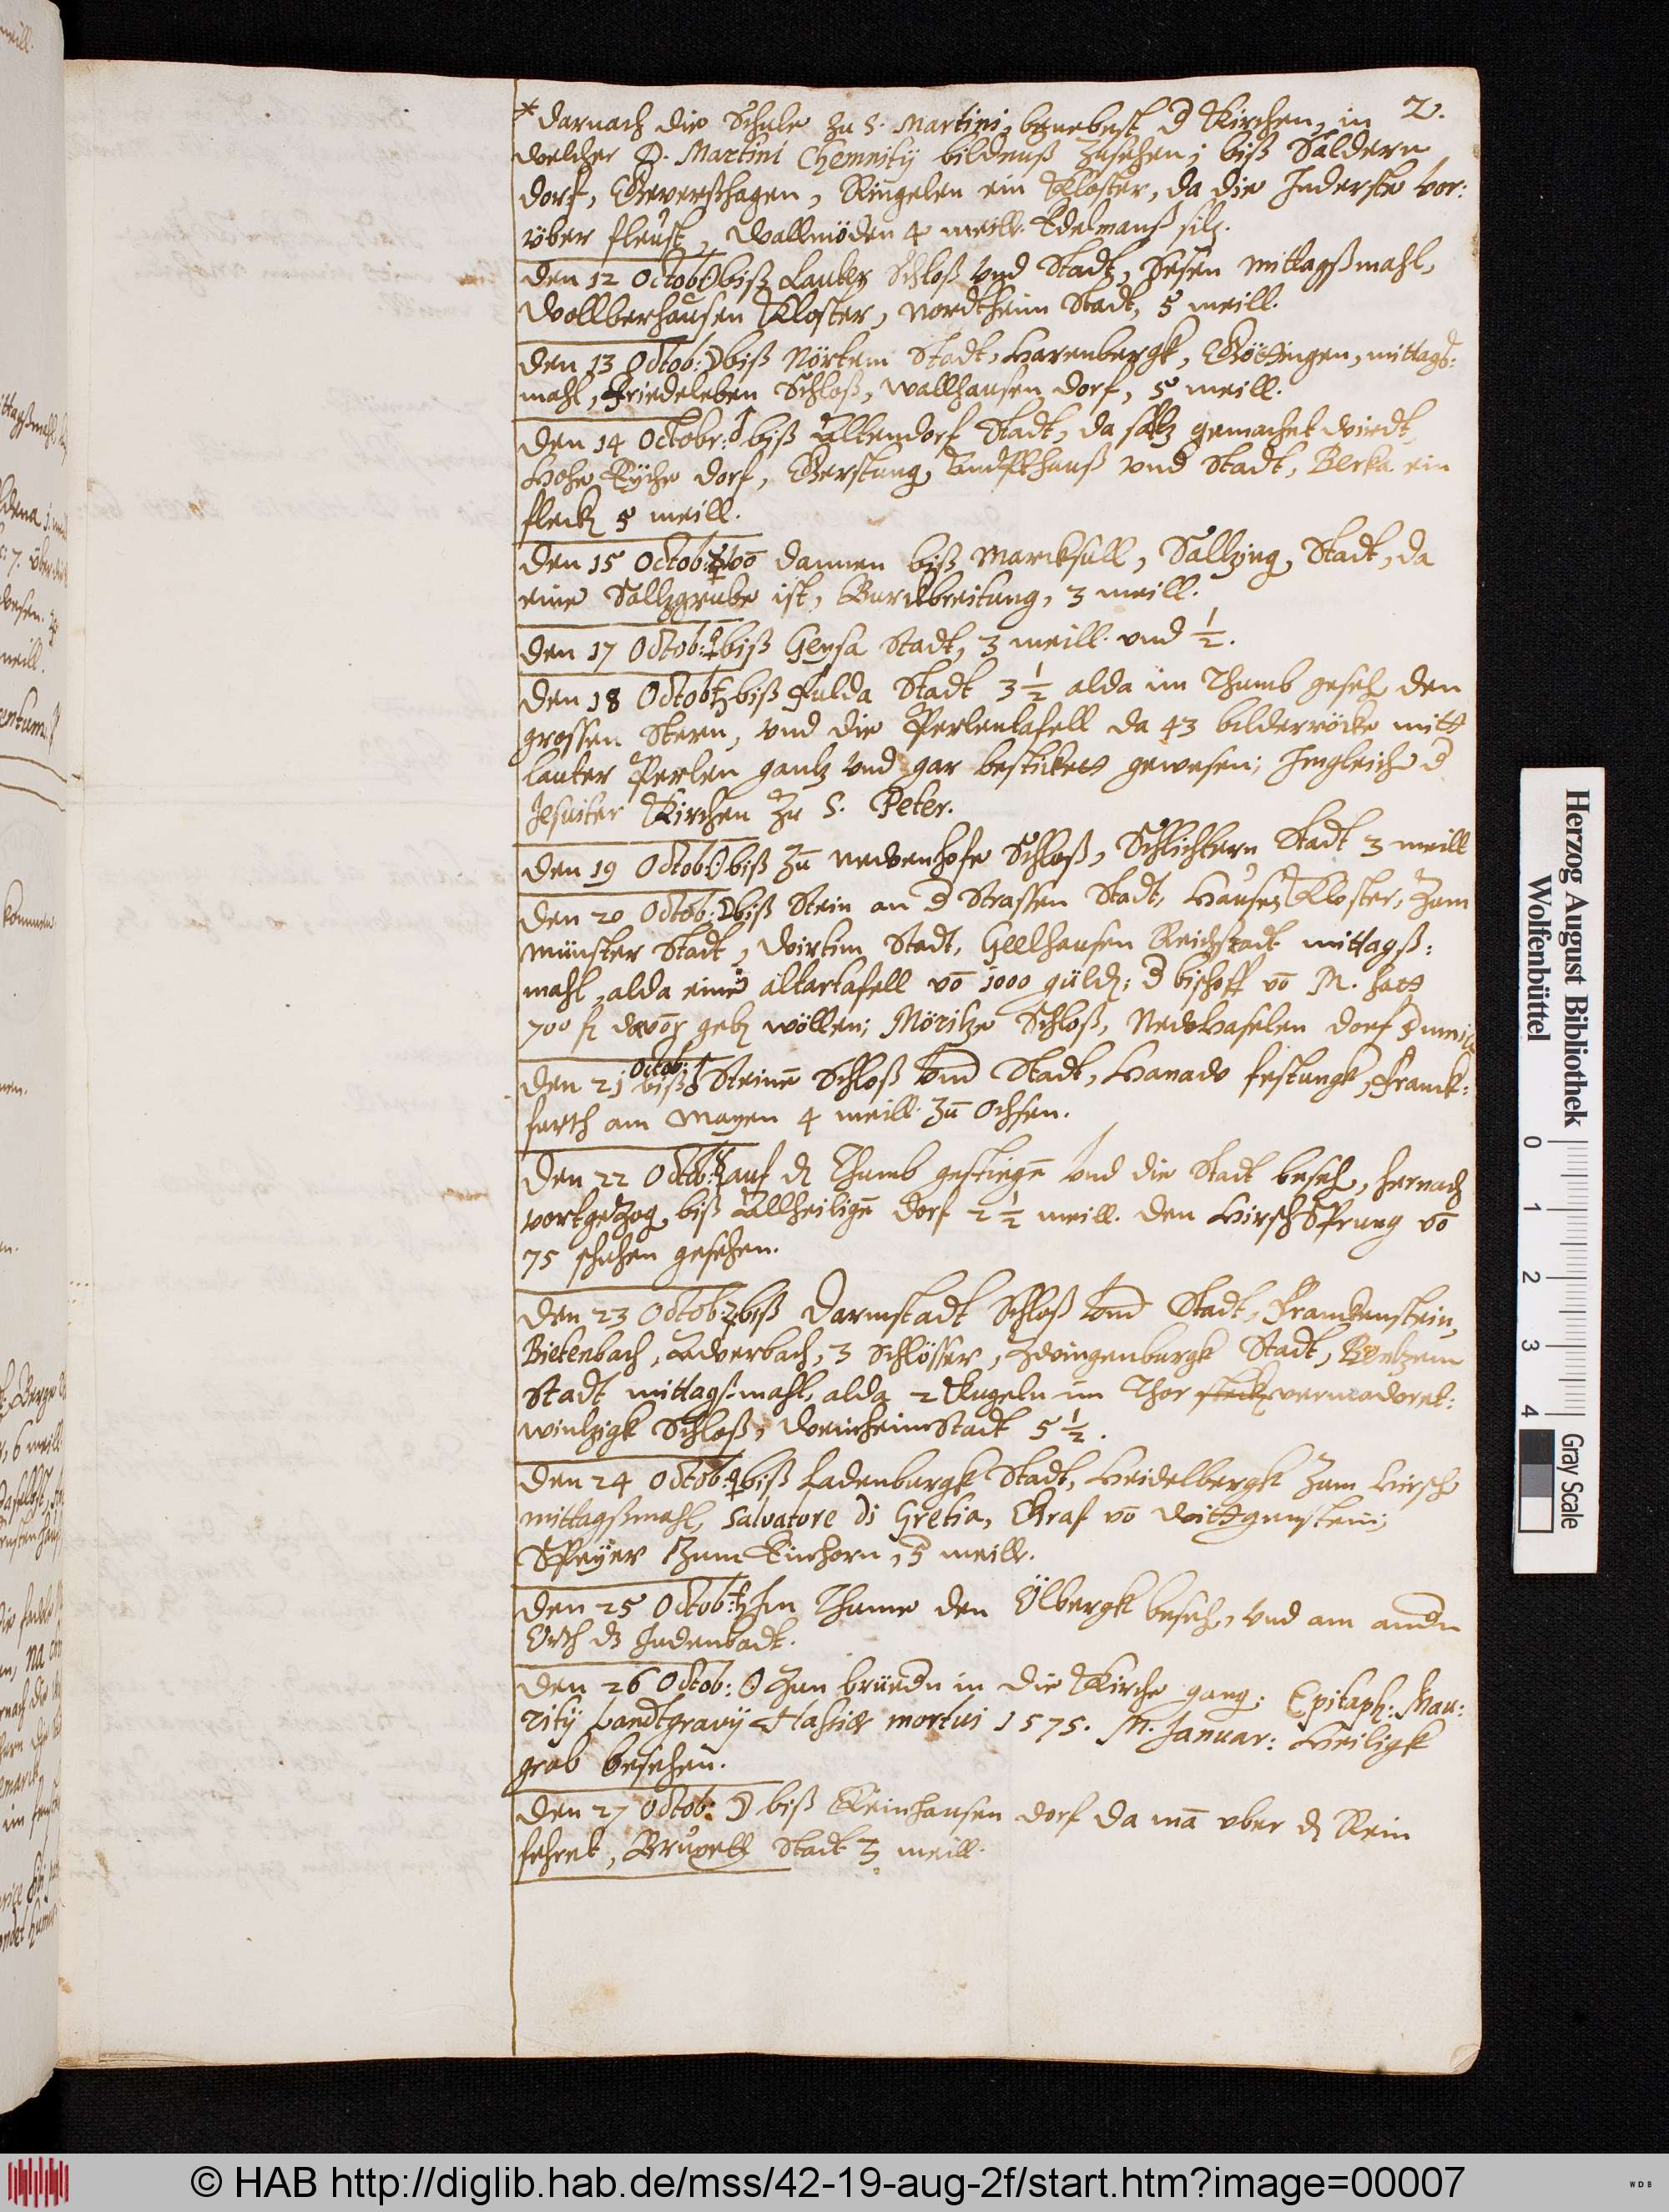 2.
* darnach die Schule zu S. Martini, benebest d Kirchen, in
welcher D. Martini Chemnitij bildnuß zusehen; biß Saldern
dorf, Geverßhagen, Ringelen ein Kloster, da die Inderste vor:
über fleust, Wallmöden 4 meill. Edelmanß sitz.
den 12 Octob: ☉ biß Lauter Schloß und Stadt, Sesen mittagßmahl,
Wollberhausen Kloster, Nordtheim Stadt, 5 meill.
den 13 Octob: ☽ biß Nörtem Stadt, Harenbergk, Göttingen, mittags:
mahl, Friedeleben Schloß, Wallhausen dorf, 5 meill.
den 14 Octobr: ♂ biß Altendorf Stadt, da saltz gemachet wirdt,
Hohe Eyche dorf, Gerstung, und Stadt, Berka ein
fleck 5 meill.
den 15 Octob: ☿ vō dannen biß Marcksull, Saltzing, Stadt, da
eine Saltzgrube ist, Burckbreitung, 3 meill.
den 17 Octob: ♀ biß Geysa Stadt, 3 meill. und ½.
den 18 Octob ♄ biß Fulda Stadt 3 ½ alda im Thumb geseh den
grossen Stern, und die Perlentafell da 43 bilderröcke mitt
lauter Perlen gantz und gar bestickett gewesen; Imgleich d
Jesuiter Kirchen zu S. Peter.
den 19 Octob: ☉ biß zū Newenhofe Schloß, Schlichtern Stadt 3 meill
den 20 Octob: ☽ biß Stein an d Strassen Stadt, Hausen Kloster, Zum
münster Stadt, Wirtim Stadt, Geelhausen Reichstadt mittagß:
mahl, alda eine altartafell vō 1000 güld: d bischoff vō M. hatt
700 fl davor geb wöllen; Möritze Schloß, Newhaselen dorf 5 meil
den 21 Octob: ♂ biß Steinē Schloß und Stadt, Hanaw festungk, Franck:
furth am Mayen 4 meill. zū Ochsen.
den 22 Octob: ☿ auf d Thumb gestiegē und die Stadt beseh, hernach
vortgezog biß Allheiligē dorf 2 ½ meill. den Hirsch Sprung vō
75 schuhen gesehen.
den 23 Octob: ♃ biß Darmstadt Schloß und Stadt, Franckenstein,
Bickenbach, Awerbach, 3 Schlösser, Zwingenburgk Stadt, Bentzem
Stadt mittags-mahl, alda 2 Kugeln im Thor vermawret:
wintzigk Schloß, Weinheim Stadt 5 ½.
den 24 Octob: ♀ biß Ladenburgk Stadt, Heidelbergk Zum Hirsch
mittagßmahl, Salvatore di Gretia, Graf vō Wittgenstein;
Speyer Zum Einhorn, 5 meill.
den 25 Octob: ♄ Im Thume den Ölbergk beseh, und am andn
Orth dz Judenbadt.
den 26 Octob: ☉ Zun brüedn in die Kirche gang; Epitaph: Mau:
ritij Landtgravij Hassiæ mortui 1575. M. Januar: Heiligk
grab besehen.
den 27 Octob: ☽ biß Reinhausen dorf da mā uber d Rein
fehret, Bruxell Stadt 3 meill.
Herzog August Bibliothek
Wolfenbüttel
0 1 2 3 4
Gray Scale
© HAB http://diglib.hab.de/mss/42-19-aug-2f/start.htm?image=00007
WDB